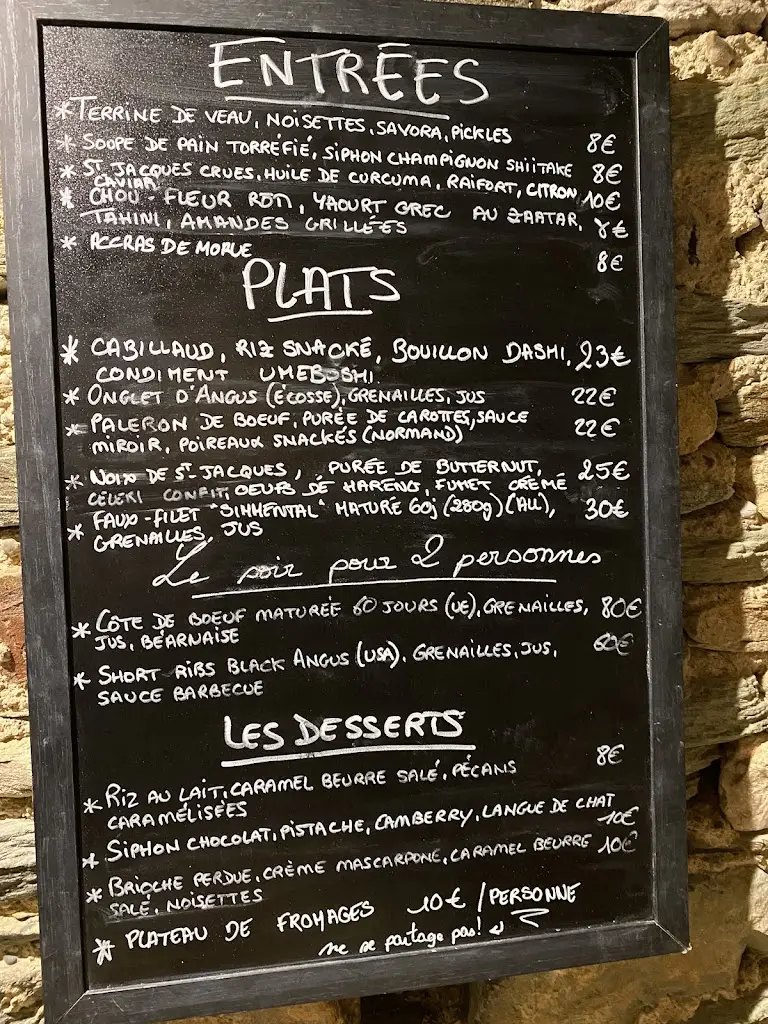 ENTRÉES
* TERRINE DE VEAU, NOISETTES, SAVORA, PICKLES 8€
* SOUPE DE PAIN TORRÉFIÉ, SIPHON CHAMPIGNON SHIITAKE 8€
* ST JACQUES CRUES, HUILE DE CURCUMA, RAIFORT, CITRON 10€
CAVIAR
* CHOU-FLEUR ROTI, YAOURT GREC AU ZAATAR,
TAHINI, AMANDES GRILLÉES 8€
* ACCRAS DE MORUE 8€
PLATS
* CABILLAUD, RIZ SNACKÉ, BOUILLON DASHI, 23€
CONDIMENT UMEBOSHI.
* ONGLET D'ANGUS (ÉCOSSE), GRENAILLES, JUS 22€
* PALERON DE BOEUF, PURÉE DE CAROTTES, SAUCE 22€
MIROIR, POIREAUX SNACKÉS (NORMAND)
* NOIX DE ST-JACQUES, PURÉE DE BUTTERNUT, 25€
CÉLERI CONFIT, OEUFS DE HARENG, FUMET CRÉMÉ
* FAUX-FILET "SIMMENTAL" MATURÉ 60j (280g) (ALL), 30€
GRENAILLES, JUS
Le soir pour 2 personnes
* CÔTE DE BOEUF MATURÉE 60 JOURS (UE), GRENAILLES, 80€
JUS, BÉARNAISE
* SHORT RIBS BLACK ANGUS (USA), GRENAILLES, JUS, 60€
SAUCE BARBECUE
LES DESSERTS
* RIZ AU LAIT, CARAMEL BEURRE SALÉ, PÉCANS 8€
CARAMÉLISÉES
* SIPHON CHOCOLAT, PISTACHE, CAMBERRY, LANGUE DE CHAT
10€
* BRIOCHE PERDUE, CRÈME MASCARPONE, CARAMEL BEURRE 10€
SALÉ, NOISETTES
* PLATEAU DE FROMAGES 10€ / PERSONNE
ne se partage pas!